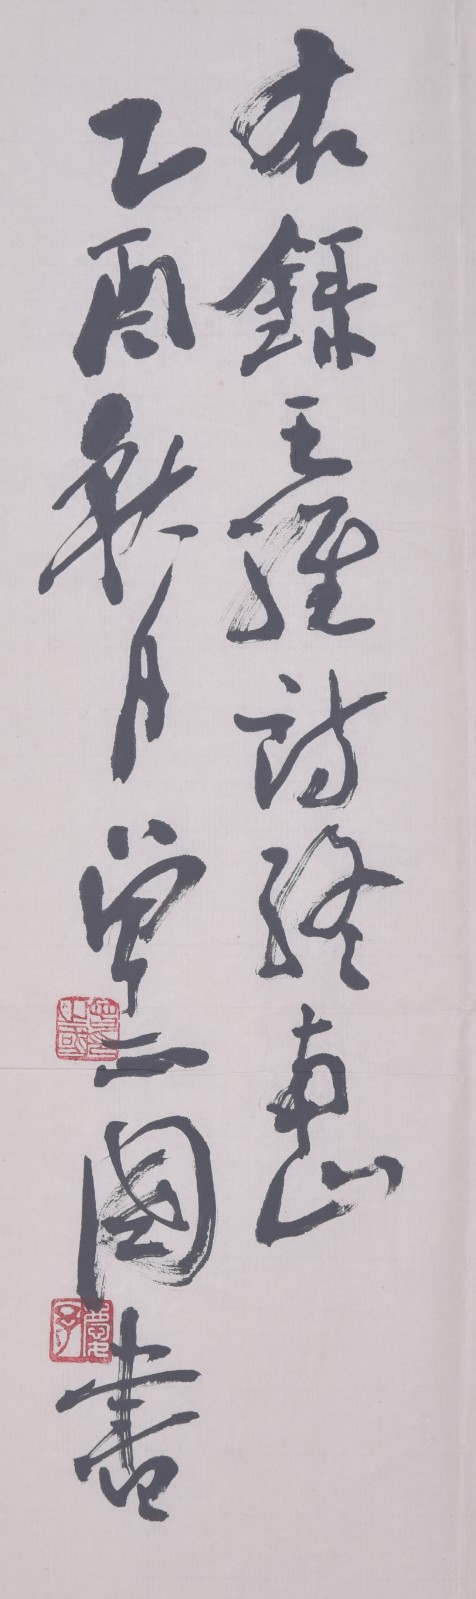 右錄王維詩終南山
乙酉秋月 國書